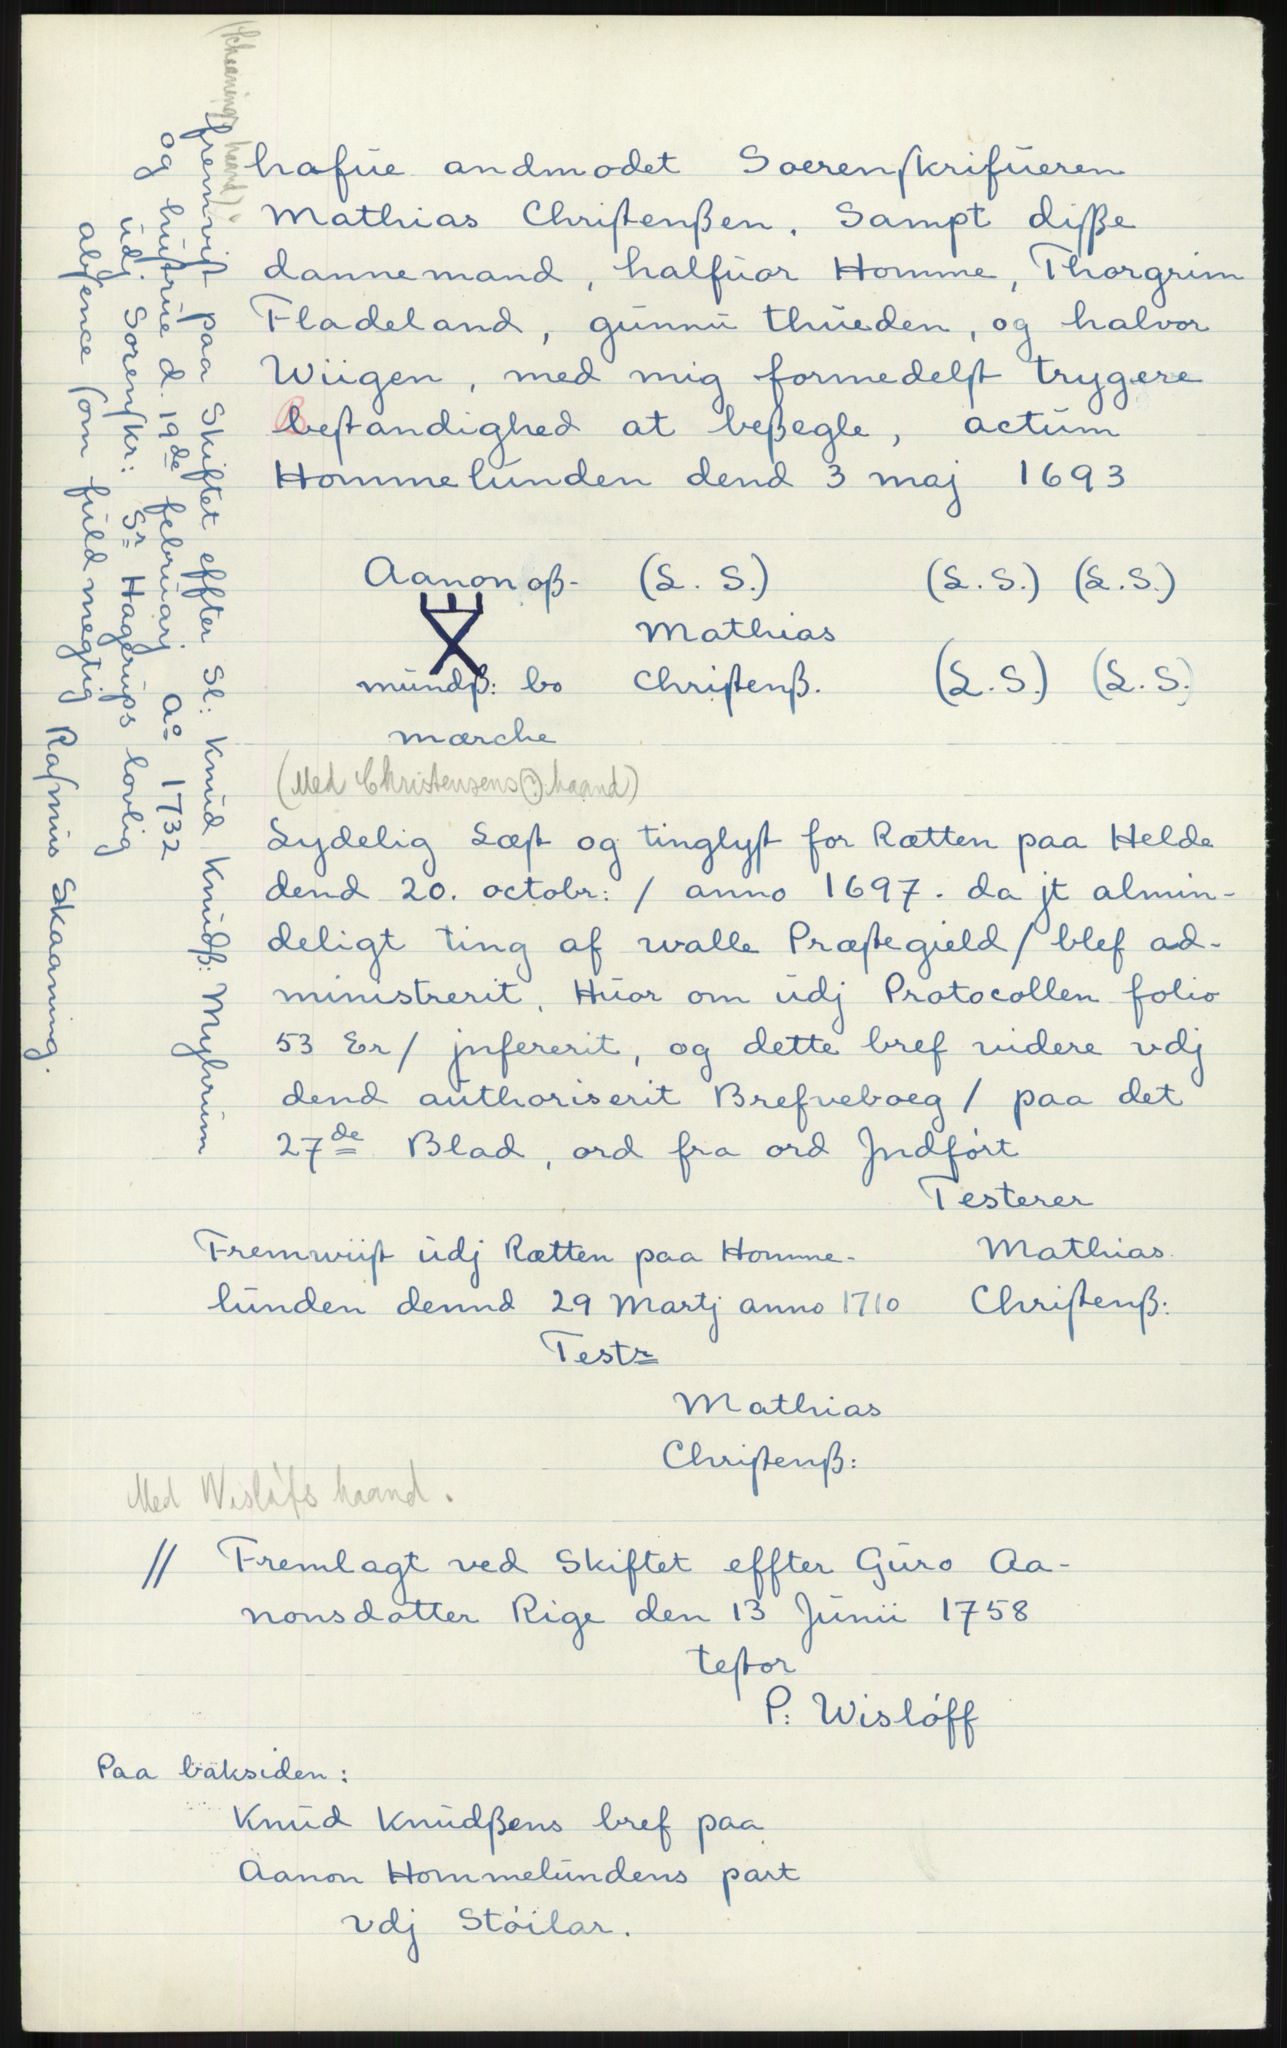 hafüe andmodet Soerenſkrifüeren
Mathias Chriſtenßen, Sampt dißße
dannemand, halfüor Homme, Thorgrim
Fladeland, günnü thüeden, og halvor
Wiigen, med mig formedelſt trygere
beſtandighed at beßegle, actüm
Hommelünden dend 3 maj 1693
Aanon oß- (L. S.) (L.S.) (L.S.)
Mathias
mündß: bo Chriſtenß. (L.S.) (L.S.)
mærche
(Med Christensens(?) haand)
Lydelig Læſt og tinglyſt for Rætten paa Helde
dend 20. octobr: / anno 1697. da jt almin-
deligt ting af walle Præſtegield / blef ad-
ministrerit, Hüor om üdj Protocollen folio
53 Er / jnfererit, og dette bref videre vdj
dend aüthoriserit Brefveboeg / paa det
27de Blad, ord fra ord Jndfört
Testerer
Fremwiiſt üdj Rætten paa Homme- Mathias
lünden dennd 29 Martj anno 1710 Chriſtenß:
Testr
Mathias
Chriſtenß:
Med Wislöfs haand.
// Fremlagt ved Skiftet effter Güro Aa-
nonsdatter Rige den 13 Jünii 1758
teſtor
P: Wislöff
Paa baksiden:
Knüd Knüdßens bref paa
Aanon Hommelündens part
vdj Stöilar.
(Skaanings haand)
fremviſt paa Skiftet effter Sl: Knüd Knüdß: Myhrüm
og hüſtrüe d. 19de febrüarj ao 1732
üdj Sorenſkr: Sr Hagerüps lovlig
abſence ſom füldmegtig Raſmüs Skaaning.